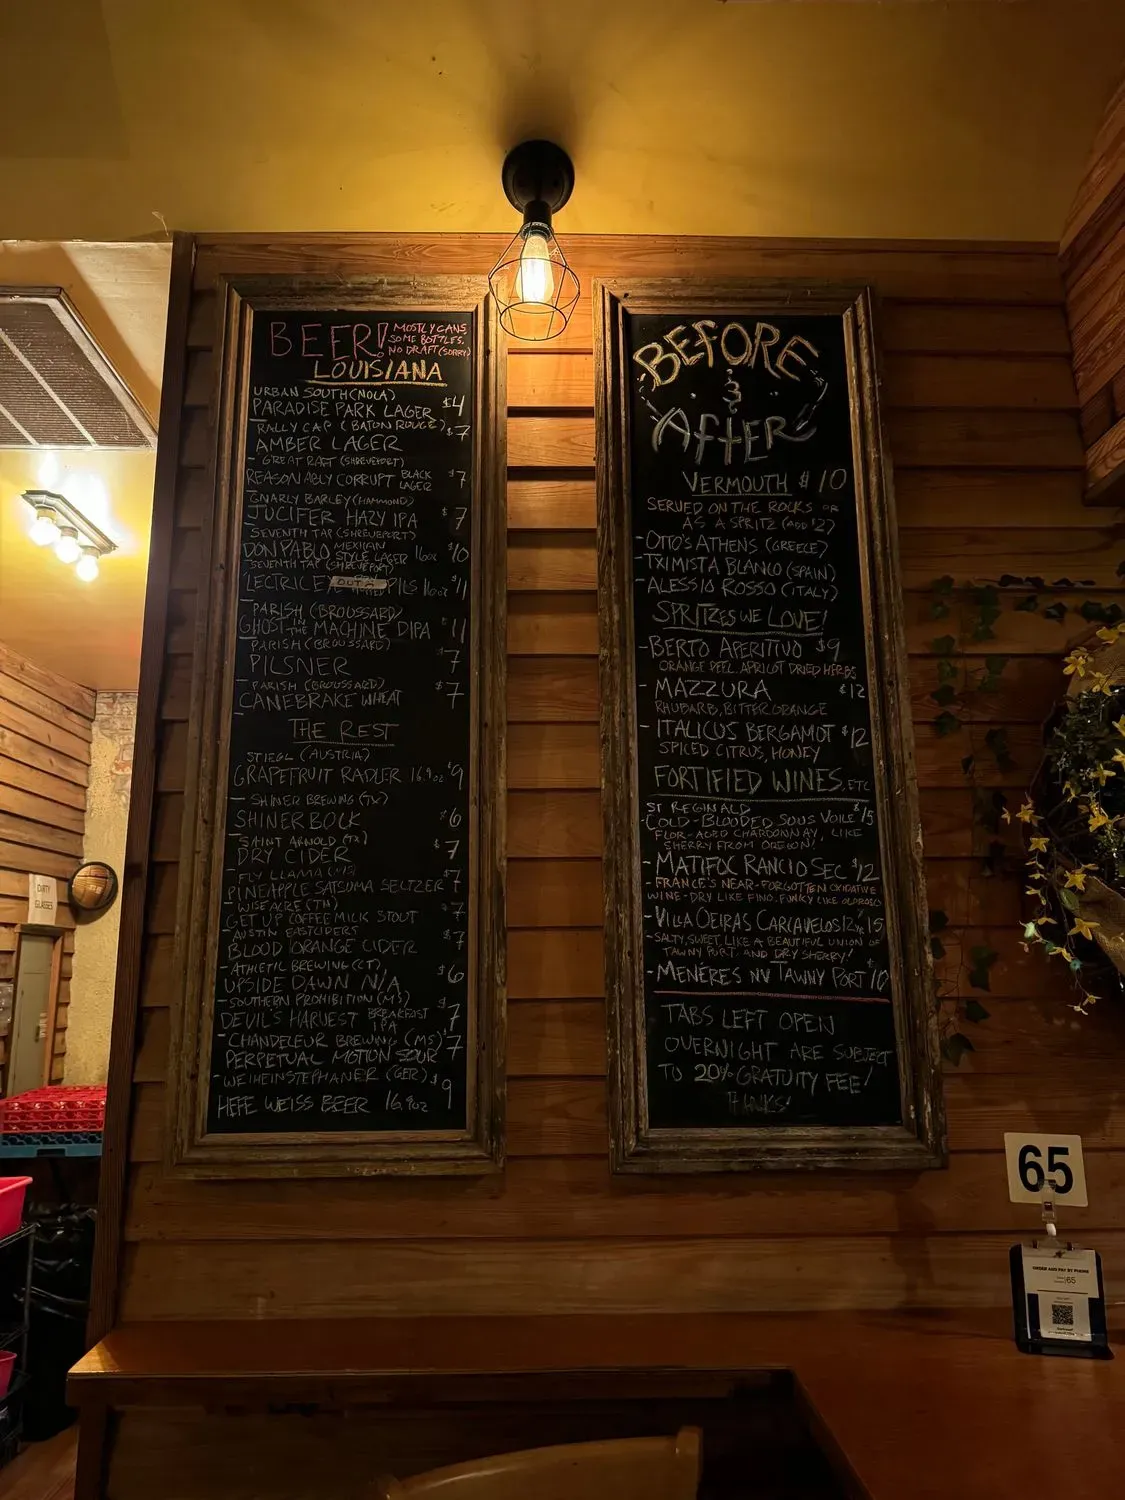 BEER!
MOSTLY CANS,
SOME BOTTLES,
NO DRAFT (SORRY)
LOUISIANA
URBAN SOUTH (NOLA)
PARADISE PARK LAGER $4
RALLY CAP (BATON ROUGE)
AMBER LAGER $7
- GREAT RAFT (SHREVEPORT)
REASONABLY CORRUPT BLACK LAGER $7
GNARLY BARLEY (HAMMOND)
JUCIFER HAZY IPA $7
SEVENTH TAP (SHREVEPORT)
DON PABLO MEXICAN STYLE LAGER 16oz $10
SEVENTH TAP (SHREVEPORT)
'LECTRIC OUT PILS 16oz $11
PARISH (BROUSSARD)
GHOST IN THE MACHINE DIPA $11
PARISH (BROUSSARD)
PILSNER 7
PARISH (BROUSSARD)
CANEBRAKE WHEAT $7
THE REST
STIEGL (AUSTRIA)
GRAPEFRUIT RADLER 16.9oz $9
- SHINER BREWING (TX)
SHINER BOCK $6
SAINT ARNOLD (TX)
DRY CIDER $7
- FLY LLAMA (MS)
PINEAPPLE SATSUMA SELTZER $7
- WISEACRE (TN)
GET UP COFFEE MILK STOUT $7
AUSTIN EASTCIDERS
BLOOD ORANGE CIDER $7
- ATHLETIC BREWING (CT)
UPSIDE DAWN N/A $6
- SOUTHERN PROHIBITION (MS)
DEVIL'S HARVEST BREAKFAST IPA $7
- CHANDELEUR BREWING (MS)
PERPETUAL MOTION SOUR $7
- WEIHEINSTEPHANER (GER)
HEFE WEISS BEER 16.9oz $9
BEFORE
&
AFTER
VERMOUTH $10
SERVED ON THE ROCKS OR
AS A SPRITZ (ADD $2)
- OTTO'S ATHENS (GREECE)
- TXIMISTA BLANCO (SPAIN)
- ALESSIO ROSSO (ITALY)
SPRITZES WE LOVE!
- BERTO APERITIVO $9
ORANGE PEEL, APRICOT DRIED HERBS
- MAZZURA $12
RHUBARB, BITTER ORANGE
- ITALICUS BERGAMOT $12
SPICED CITRUS, HONEY
FORTIFIED WINES, ETC
ST REGINALD
- COLD-BLOODED SOUS VOILE $15
FLOR-AGED CHARDONNAY, LIKE
SHERRY FROM OREGON!
- MATIFOC RANCIO SEC $12
- FRANCE'S NEAR-FORGOTTEN OXIDATIVE
WINE - DRY LIKE FINO. FUNKY LIKE OLOROSO
- VILLA OEIRAS CARCAVELOS 12YR 15
- SALTY, SWEET, LIKE A BEAUTIFUL UNION OF
TAWNY PORT AND DRY SHERRY!
- MENERES NV TAWNY PORT $10
TABS LEFT OPEN
OVERNIGHT ARE SUBJECT
TO 20% GRATUITY FEE!
THANKS!
DIRTY
GLASSES
65
ORDER AND PAY BY PHONE
65